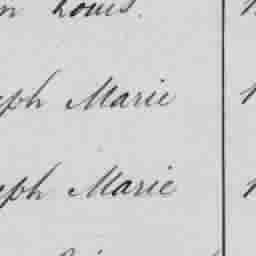 n Louis.
eph Marie
eph Marie